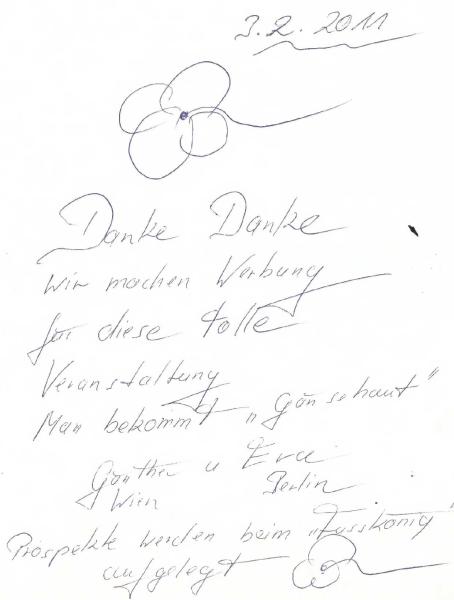 3.2.2011
Danke Danke
Wir machen Werbung
für diese tolle
Veranstaltung
Man bekommt „Gänsehaut"
Günther u Eva
Wien Berlin
Prospekte werden beim „Fusskönig"
aufgelegt